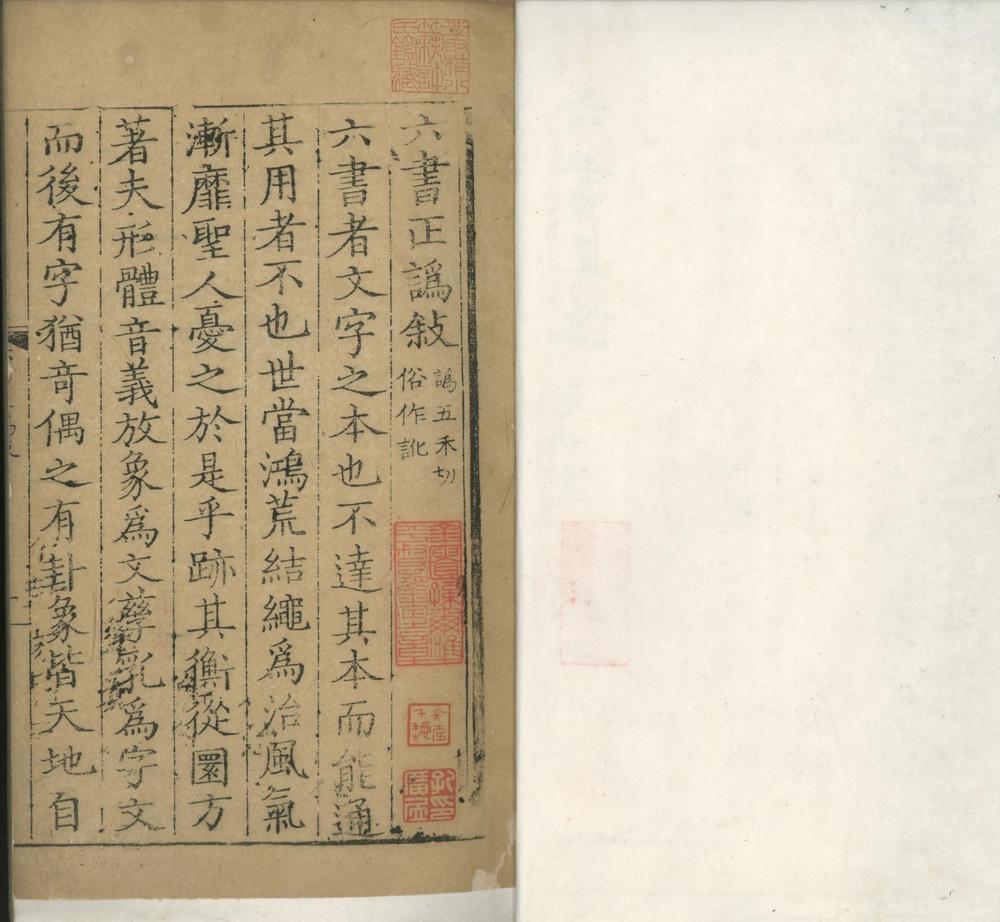 六書正譌敍 譌五禾切
俗作訛
六書者文字之本也不達其本而能通
其用者不也世當鴻荒結繩為治風氣
漸靡聖人憂之於是乎跡其衡從圜方
著夫形體音義放象為文孳乳為字文
而後有字猶奇偶之有卦象皆天地自